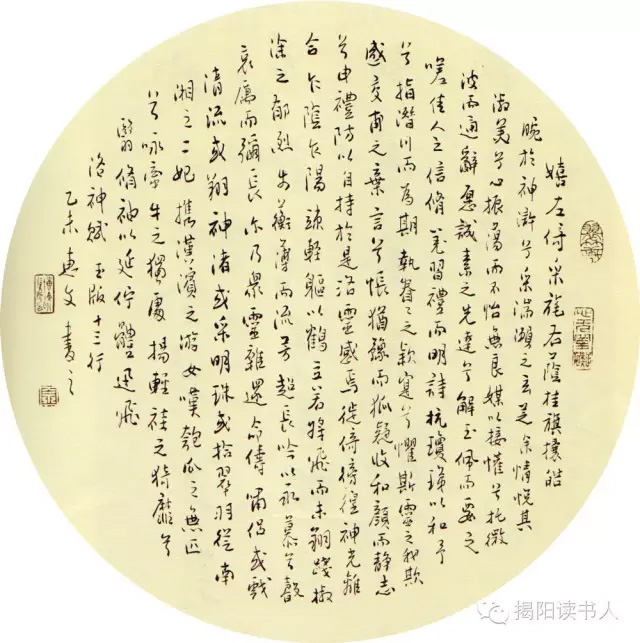 嬉左倚采旄右蔭桂旗攘皓
腕於神滸兮采湍瀨之玄芝余情悅其
淑美兮心振蕩而不怡無良媒以接懽兮托微
波而通辭愿誠素之先達兮解玉佩而要之
嗟佳人之信脩羌習禮而明詩抗瓊珶以和予
兮指潛川而為期執眷々之款寔兮懼斯靈之我欺
感交甫之棄言兮悵猶豫而狐疑收和顏而静志
兮申禮防以自持於是洛靈感焉徙倚徬徨神光離
合乍蔭乍陽竦輕軀以鶴立若將飛而未翔踐椒
涂之郁烈步蘅薄而流芳超長吟以永慕兮聲
哀厲而彌長尔乃眾靈雜遝命儔嘯侶或戲
清流或翔神渚或采明珠或拾翠羽從南
湘之二妃携漢濱之游女嘆匏瓜之無匹
兮咏牽牛之獨處揚輕袿之猗靡兮
翳脩袖以延佇體迅飛
洛神賦玉版十三行
乙未惠文書之
揭阳读书人